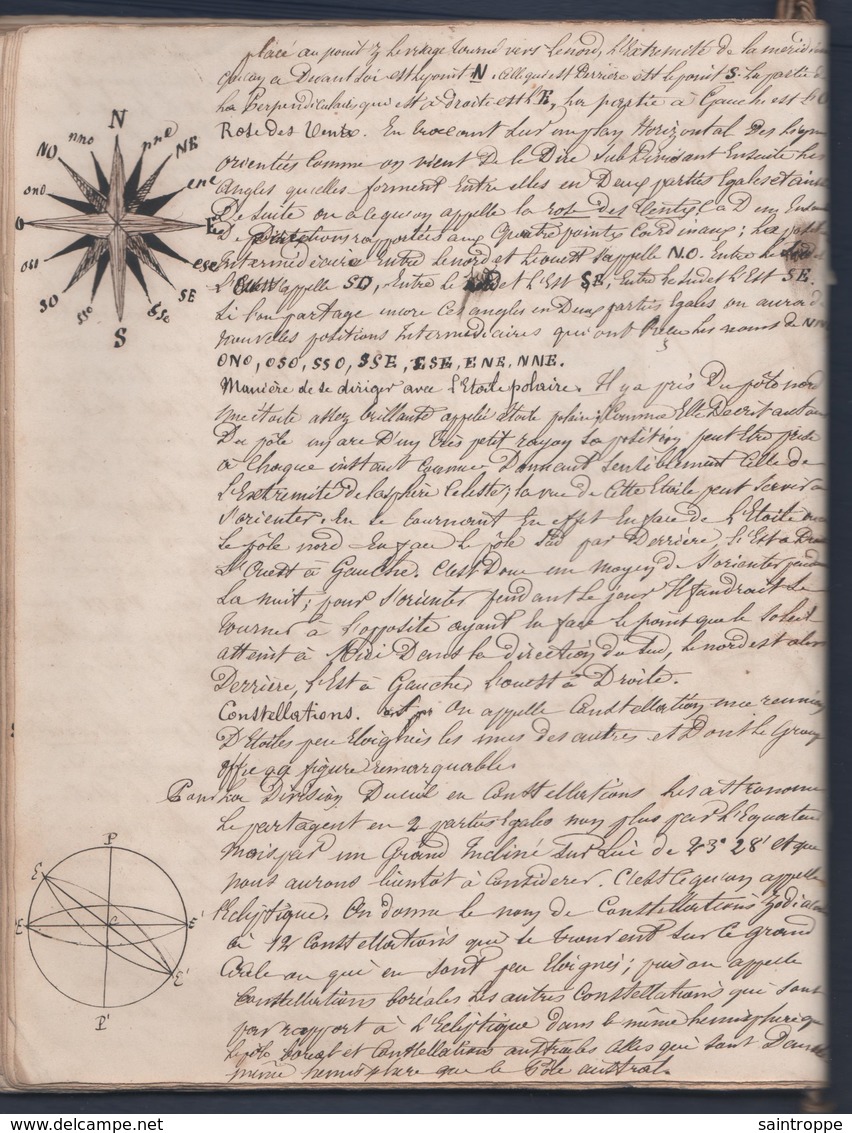 placé au point z le visage tourné vers le nord, l'Extremité de la méridi
qu'on a Devant soi est le point N. celle qui est Derrière est le point S. La partie de
La Perpendiculaire qui est à droite est l'E, La partie à Gauche est l'O
Rose des Vents. En traçant sur un plan Horizontal Des Lignes
orientées Comme on vient De le Dire Subdivisant Ensuite Les
Angles qu'elles forment Entre elles en Deux parties Egales et ainsi
De suite on a ce qu'on appelle la rose des Vents,
De Directions rapportées aux Quatre points Cardinaux; La
Intermédiaire Entre le nord et l'ouest s'appelle N.O. Entre le
L'Ouest s'appelle SO, Entre le et l'Est SE, Entre le Sud et l'Est SE.
Si l'on partage encore ces angles en Deux parties Egales on aura de
nouvelles positions Intermédiaires qui ont les noms de NN
ONO, OSO, SSO, SSE, ESE, ENE, NNE.
Manière de se diriger avec l'Etoile polaire. Il y a près Du pôle nord
une étoile assez brillante appelée étoile polaire; Comme Elle Decrit autour
Du pôle un arc D'un très petit rayon sa position peut Etre prise
à Chaque instant Comme Donnant sensiblement Celle de
L'Extremité de la sphère Celeste; la vue de Cette Etoile peut servir à
s'orienter. En se tournant En effet En face de l'Etoile
le pôle nord En face le pôle Sud par Derrière, l'Est à
L'Ouest à Gauche. C'est Donc un moyen De s'orienter
La nuit; pour s'orienter pendant le jour Il faudrait se
tourner à l'opposite ayant la face le point que le Soleil
atteint à Midi Dans la direction du Sud, le nord est alors
Derrière, l'Est à Gauche, l'ouest à Droite.
Constellations. On appelle Constellation une reunion
D'Etoiles peu Eloignées les unes des autres et Dont le Group
offre une figure remarquable.
Pour La Division Du ciel en Constellations Les astronomes
Le partagent en 2 parties Egales non plus par l'Equateur
mais par un Grand Incliné sur Lui de 23° 28' et que
nous aurons bientôt à Considerer. C'est Ce qu'on appelle
l'Ecliptique. On donne le nom de Constellations Zodiacales
à 12 Constellations qui se trouvent sur Ce grand
Cercle ou qui en sont peu Eloignées; puis on appelle
Constellations boréales Les autres Constellations qui sont
par rapport à l'Ecliptique dans le même hemisphère que
le pôle boréal et Constellations australes celles qui sont Dans le
même hemisphère que le Pôle austral.
N
nne
NE
ene
E
ese
SE
sse
S
sso
SO
oso
O
ono
NO
nno
P
E
E
C
E'
E'
P'
saintroppe